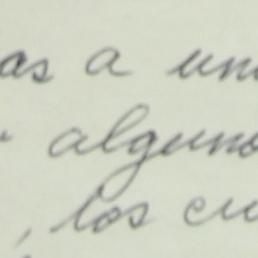 as a un
alguno
, los cu